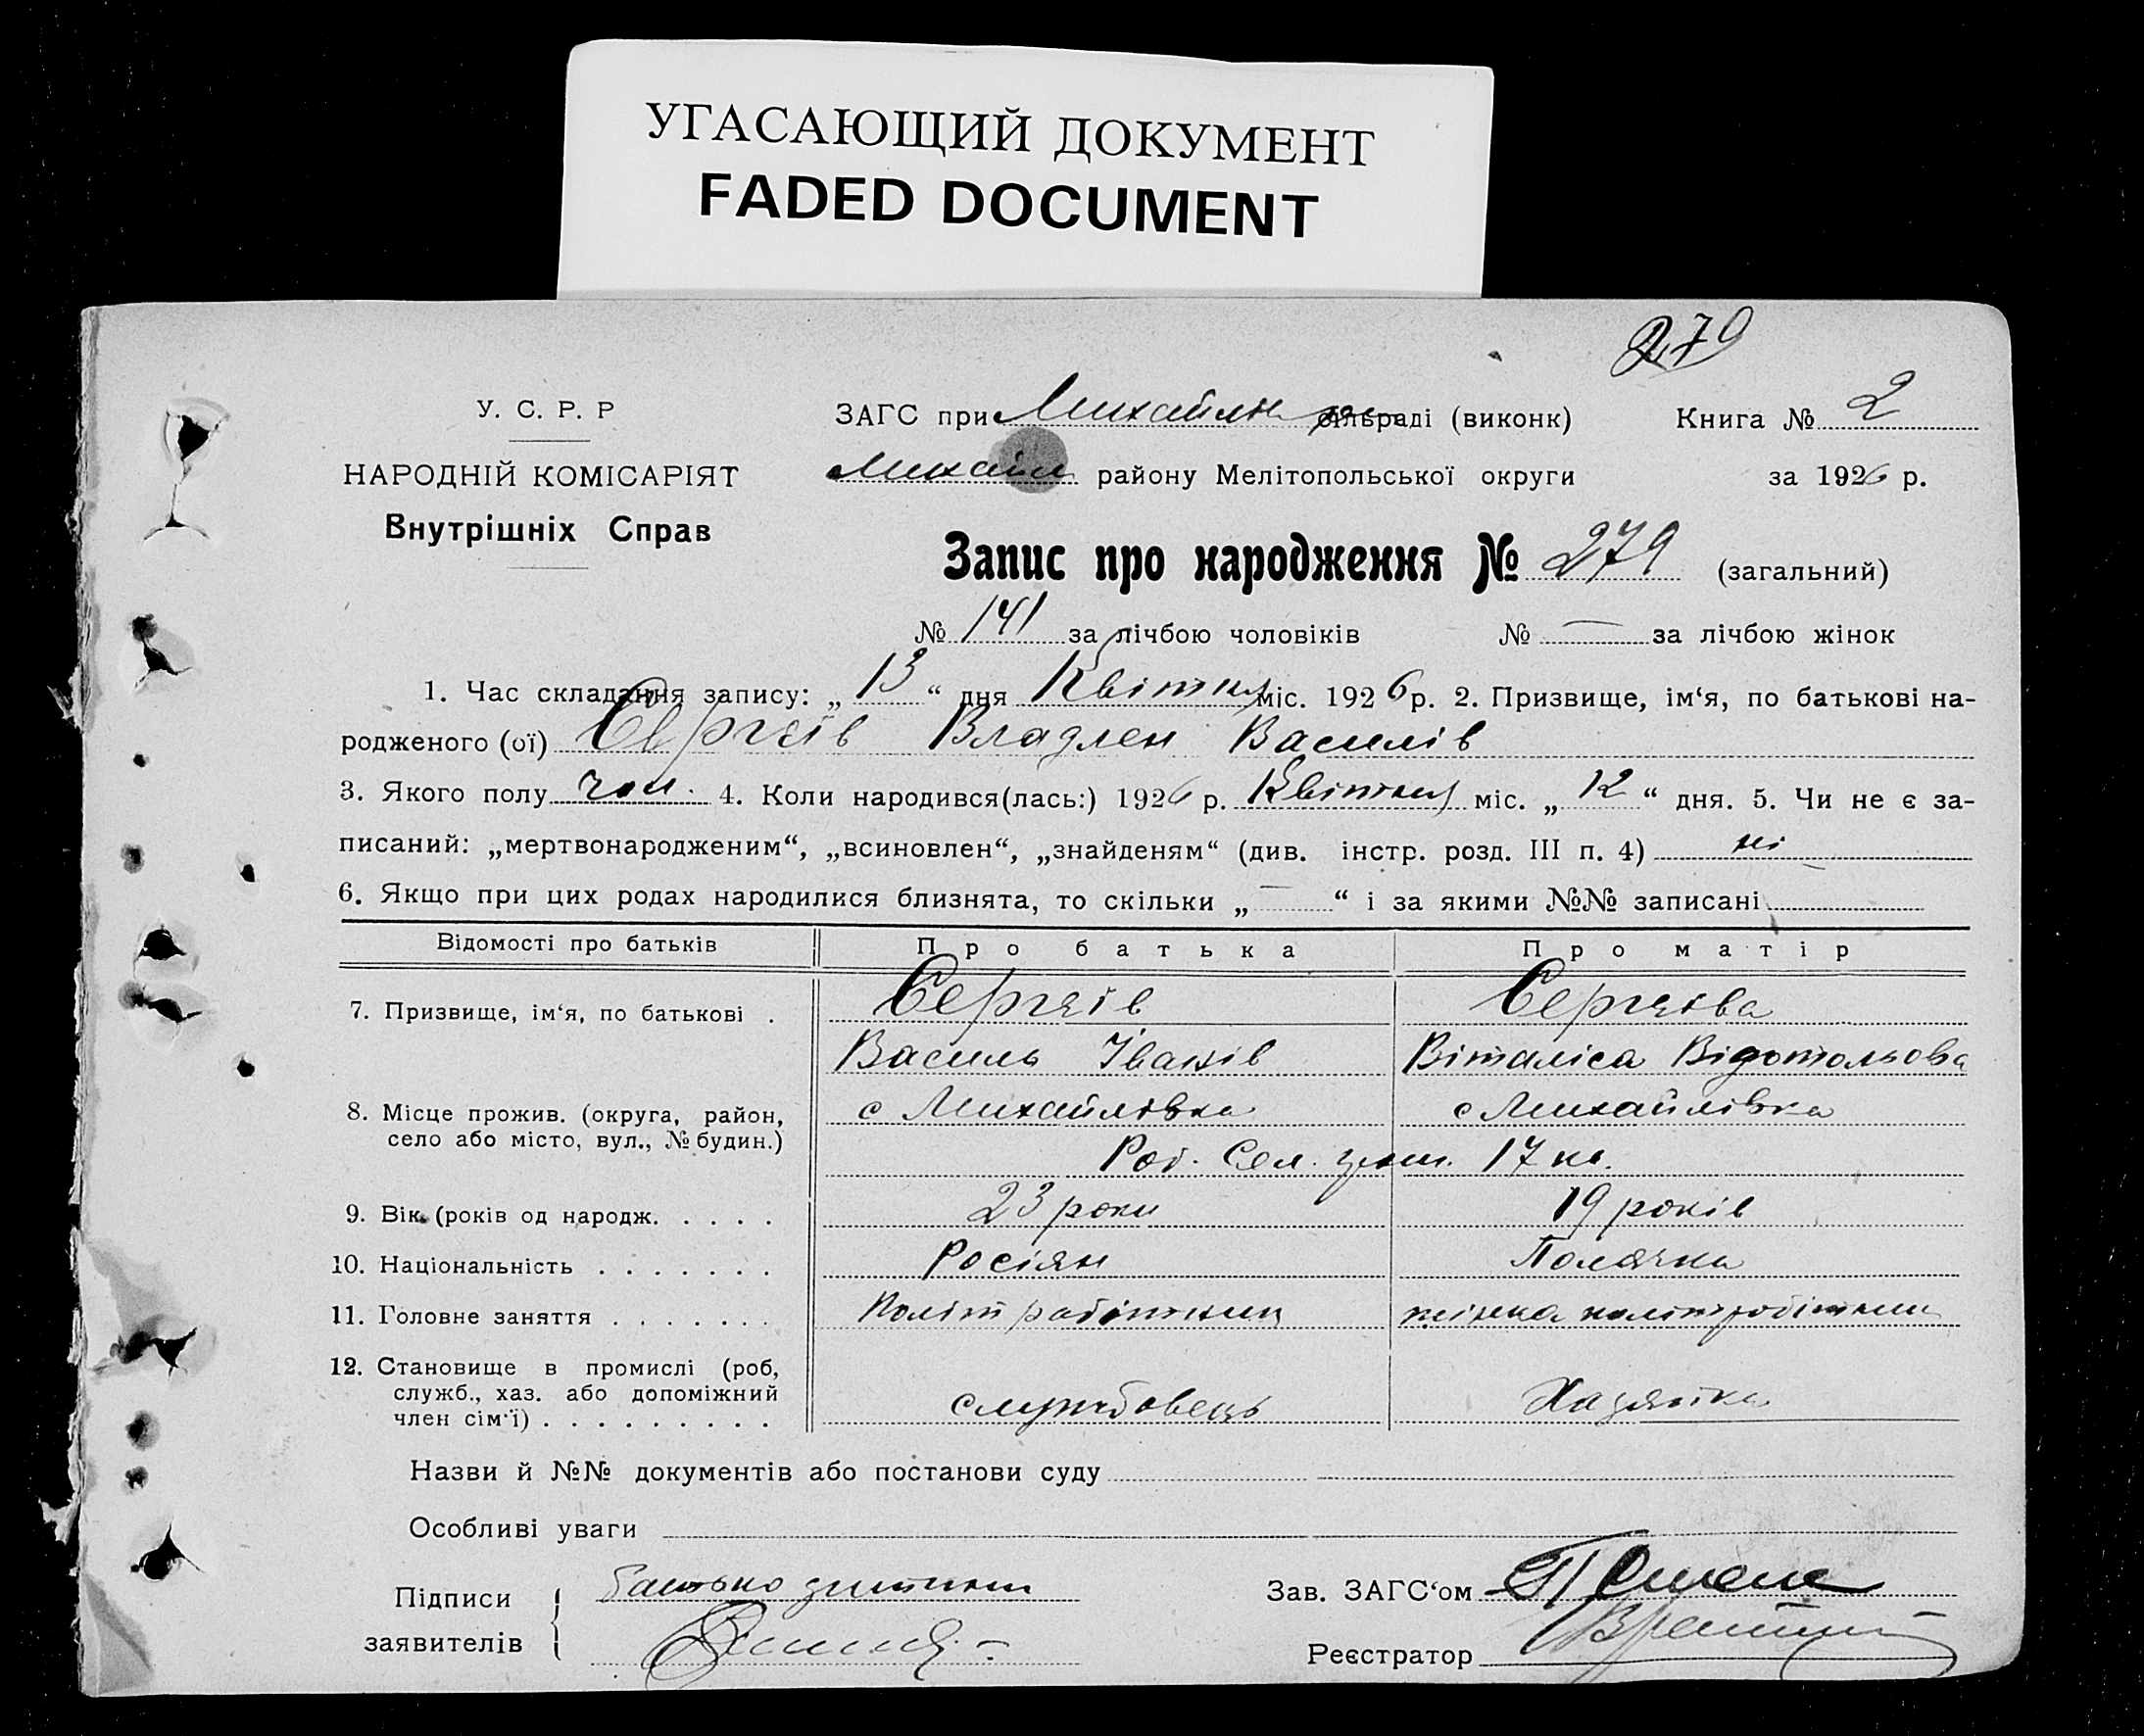 УГАСАЮЩИЙ ДОКУМЕНТ
FADED DOCUMENT
279
У. С. Р. Р
ЗАГС при Михайлів сільраді (виконк) Книга № 2
НАРОДНІЙ КОМІСАРІЯТ
Михайл району Мелітопольської округи за 1926 р.
Внутрішніх Справ
Запис про народження № 279 (загальний)
№ 141 за лічбою чоловіків № — за лічбою жінок
1. Час складання запису: „ 13 “ дня Квітня міс. 1926 р. 2. Призвище, ім‘я, по батькові на-
родженого (ої) Сергєїв Владлен Василів
3. Якого полу чол. 4. Коли народився(лась:) 1926 р. Квітня міс. „ 12 “ дня. 5. Чи не є за-
писаний: „мертвонародженим“, „всиновлен“, „знайденям“ (див. інстр. розд. III п. 4) ні
6. Якщо при цих родах народилися близнята, то скільки „ — “ і за якими №№ записані
Відомості про батьків Про батька Про матір
7. Призвище, ім‘я, по батькові . Сергєїв Сергєєва
Василь Іванів Віталіса
8. Місце прожив. (округа, район, с Михайлівка с Михайлівка
село або місто, вул., № будин.)
Роб. Сел. 17 кв.
9. Вік (років од народж. . . . . 23 роки 19 років
10. Національність . . . . . . . Росіян Полячка
11. Головне заняття . . . . . . . Політробітник жінка політробітника
12. Становище в промислі (роб,
служб., хаз. або допоміжний
член сім‘ї) . . . . . . . . . службовець Хазяйка
Назви й №№ документів або постанови суду
Особливі уваги
Підписи батько дитини
заявителів
Зав. ЗАГС‘ом
Реєстратор